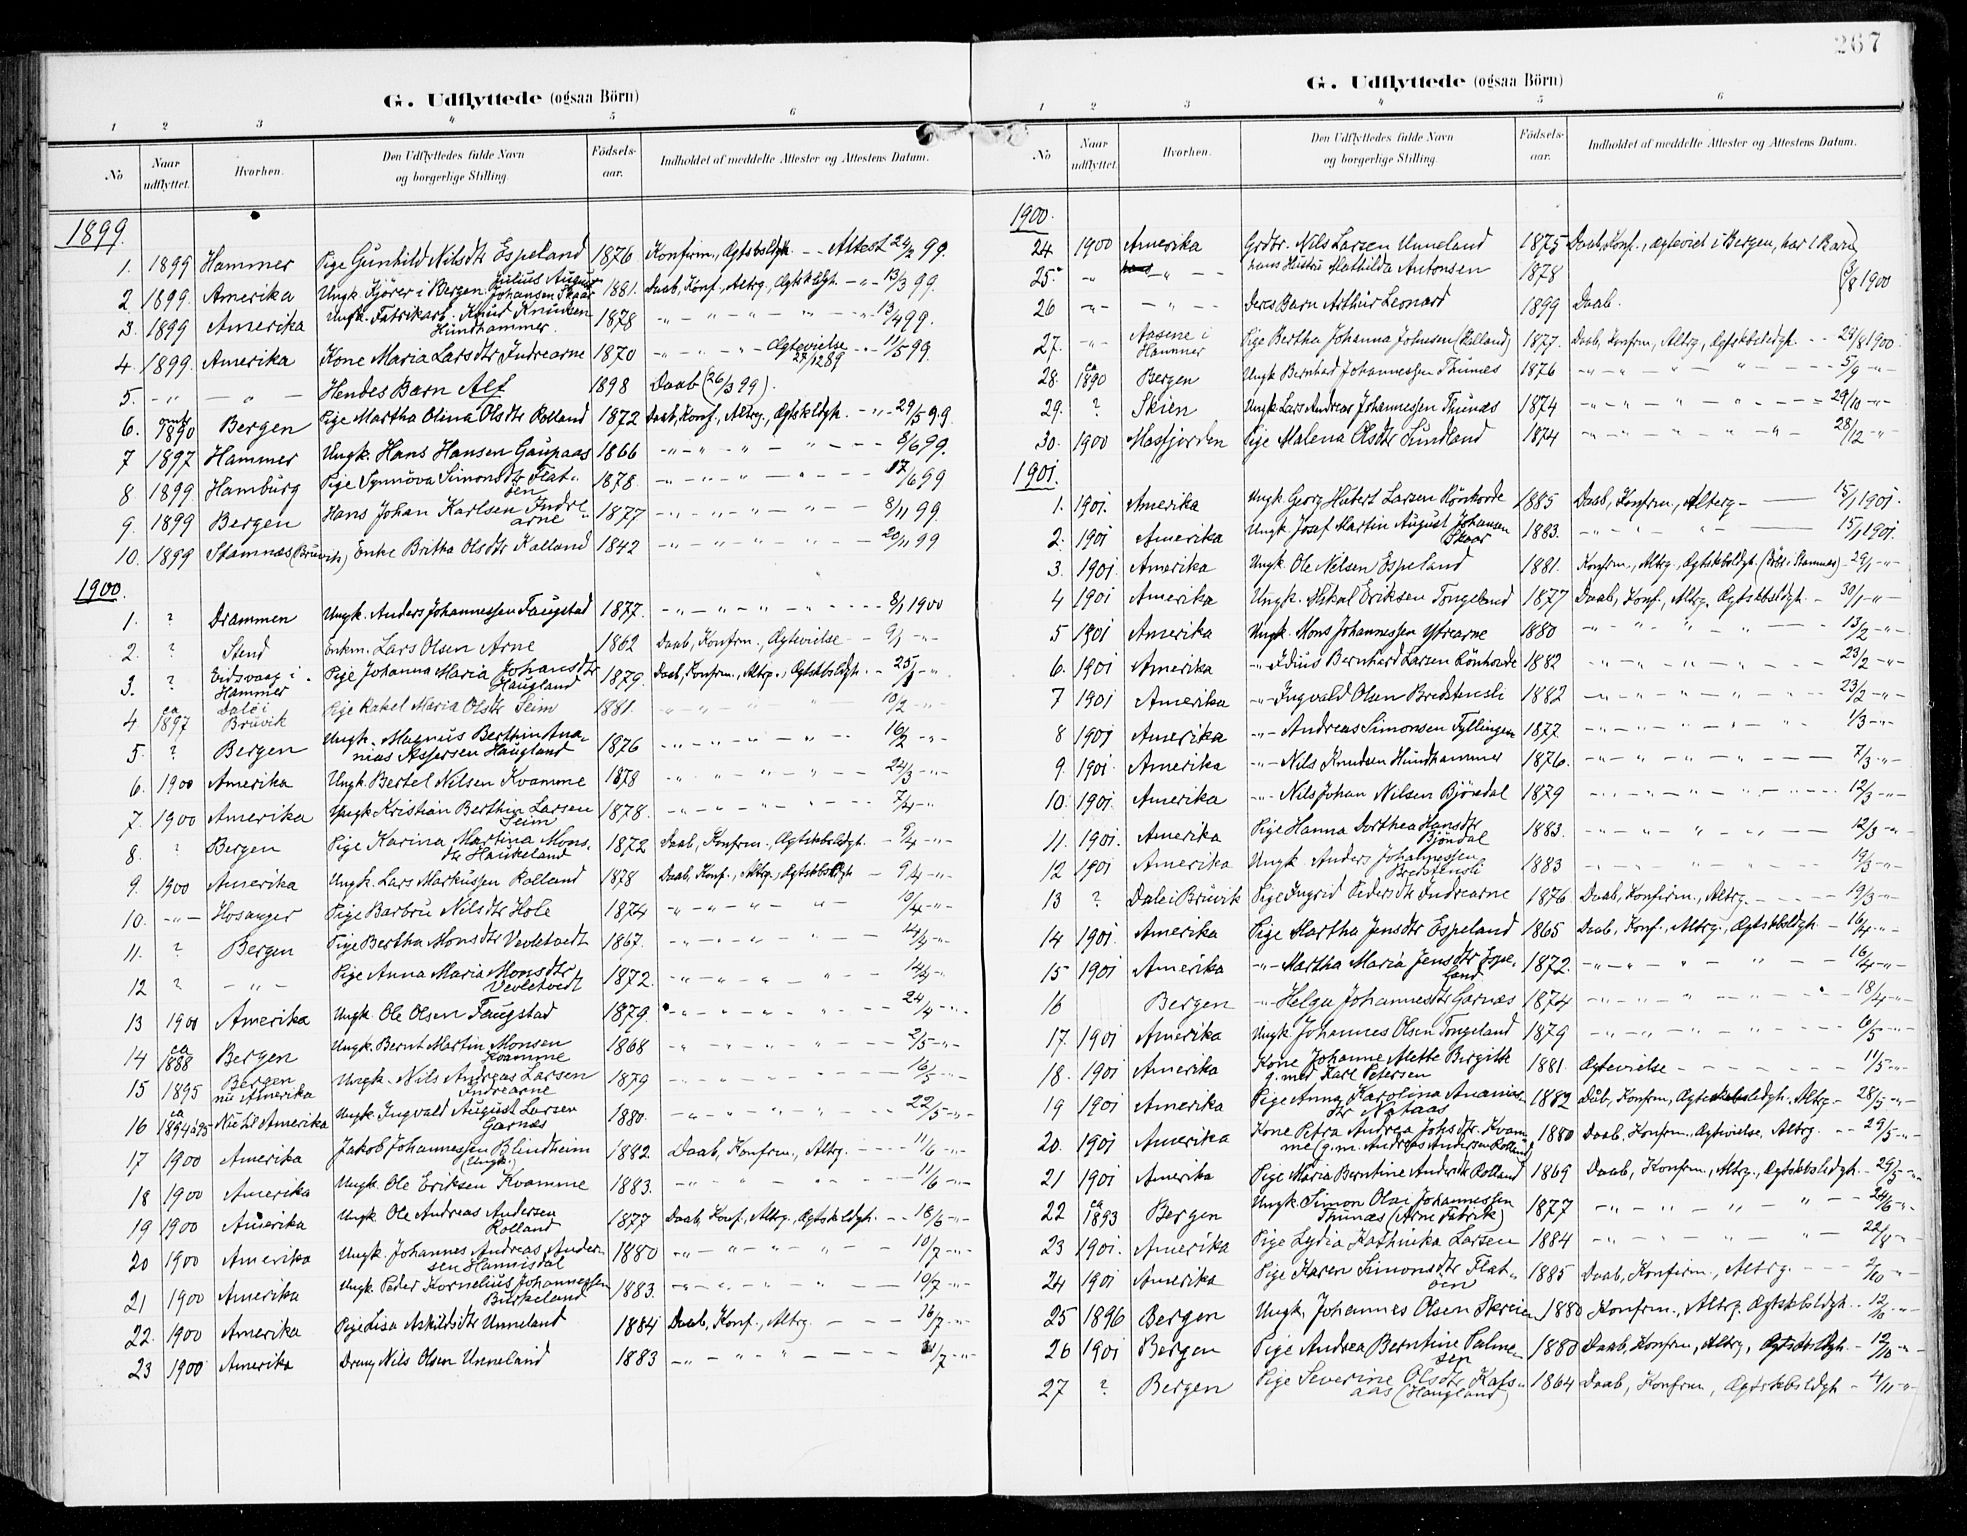 267
G. Udflyttede (ogsaa Börn)
1 2 3 4 5 6
No Naar udflyttet. Hvorhen. Den Udflyttedes fulde Navn og borgerlige Stilling. Födsels-aar. Indholdet af meddelte Attester og Attestens Datum.
1899.
1. 1899 Hammer Pige Gunhild Nilsdtr Espeland 1876 Konfirm., Ægtsbsldgh. - - Attest 24/2 99.
2. 1899. Amerika Ungk. Kjører i Bergen Julius August Johansen Skaar 1881. Daab, Konf., Altrg., Ægtskbldgh. - " - 13/3 99.
3. 1899 Amerika Ungk. Fabrikarb. Knud Knudsen Hundhammer 1878 - " - " - " - " - 13/4 99.
4. 1899. Amerika Kone Maria Larsdtr Indrearne 1870 - " - " - " - Ægtevielse 27/12 89 - " 11/5 99.
5. - " - - " - Hendes Barn Alf 1898 Daab (26/3 99).
6. 1890 Bergen Pige Martha Olina Olsdtr Rolland 1872 Daab, Konf., Altrg., Ægtskldgh. - " - 29/5 99.
7 1897 Hammer Ungk. Hans Hansen Gaupaas 1866 - " - " - " - " - - 8/6 99.
8 1899 Hamburg Pige Synnöva Simonsdtr Flatöen 1878. - " - " - " - " - - 17/6 99
9. 1899 Bergen Hans Johan Karlsen Indrearne 1877 - " - " - " - " - - 8/11 99.
10. 1899 Stamnæs (Bruvik) Enke Britha Olsdtr Kalland 1842 - " - " - " - " - - 20/11 99
1900.
1. ? Drammen Ungk. Anders Johannessen Taugstad 1877. - " - " - " - " - - - 8/1 1900
2. ? Stend Enkm. Lars Olsen Arne 1862 Daab, Konfrm., Ægtevielse - - 9/1 - " -
3. ? Eidsvaag i Hammer Pige Johanna Maria Johansdtr Haugland 1879. Daab, Konfrm., Altrg., Ægtskbsldgh. - 25/1 - " -
4 ca 1897 Dale i Bruvik Pige Rakel Maria Olsdtr Seim 1881. - " - " - " - " - 10/2 - " -
5. ? Bergen Ungk. Magnus Berthin Ananias Assersen Haugland 1876 - " - " - " - " - 16/2 - " -
6. 1900 Amerika Ungk. Bertel Nilsen Kvamme 1878 - " - " - " - " - 24/3 - " -
7. 1900 Amerika Ungk. Kristian Berthin Larsen Seim 1878. - " - " - " - " - 7/4 - " -
8. ? Bergen Pige Karina Martina Monsdtr Haukeland 1872 Daab, Konfrm., Ægtskbsldgh. - 9/4 - " -
9. 1900 Amerika Ungk. Lars Markussen Rolland 1878 Daab, Konf., Altrg., Ægtskbsldgh - 9/4 - " -
10. - " - Hosanger Pige Barbru Nilsdtr Hole 1874 - " - " - " - " - 10/4 - " -
11. ? Bergen Pige Bertha Monsdtr Vevletvedt 1867. - " - " - " - " - 14/4 - " -
12 ? - " - Pige Anna Maria Monsdtr Vevletvedt 1872. - " - " - " - " - 14/4 - " -
13 1900 Amerika Ungk. Ole Olsen Taugstad 1879. - " - " - " - " - 24/4 - " -
14 ca 1888 Bergen Ungk. Bernt Martin Monsen Kvamme 1868 - " - " - " - " - 2/5 - " -
15 1895 Bergen nu Amerika Ungk. Nils Andreas Larsen Indrearne 1879 - " - " - " - " - 16/5 - " -
16 ca 1894 à 95 Nu til Amerika Ungk. Ingvald August Larsen Garnæs 1880. - " - " - " - " - 22/5 - " -
17 1900 Amerika Jakob Johannessen Blindheim (Ungk.) 1882 Daab, Konfrm., Altrg. - - - 11/6 - " -
18 1900 Amerika Ungk. Ole Eriksen Kvamme 1883. - " - " - " - - - 11/6 - " -
19 1900 Amerika Ungk. Ole Andreas Andersen Rolland 1877 Daab, Konf., Altrg., Ægtskldgh. - - 18/6 - " -
20 1900 Amerika Ungk. Johannes Andreas Andersen Hannisdal 1880 - " - " - " - " - 10/7 - " -
21 1900 Amerika Ungk. Peder Kornelius Johannessen Burkeland 1883. - " - " - " - " - 10/7 - " -
22. 1900 Amerika Pige Lisa Askildsdtr Unneland 1884 Daab, Konf., Altrg. - - - 16/7 - " -
23 1900 Amerika Dreng Nils Olsen Unneland 1883 - " - " - " - - - /7 - " -
G. Udflyttede (ogsaa Börn)
1 2 3 4 5 6
No Naar udflyttet. Hvorhen. Den Udflyttedes fulde Navn og borgerlige Stilling. Födsels-aar. Indholdet af meddelte Attester og Attestens Datum.
1900.
24 1900 Amerika Grdbr. Nils Larsen Unneland 1875 Daab, Konf., ægteviet i Bergen, har 1 Barn
25. - " - - " - hans Hustru Mathilda Antonsen 1878 8/8 1900
26 - " - - " - Deres Barn Arthur Leonard 1899 Daab.
27. - " - Aasene i Hammer Pige Bertha Johanna Johnsen (Rolland) 1877. Daab, Konfrm., Altrg., Ægtskbsldgh. - - 28/8 1900.
28. ca 1890 Bergen Ungk. Bernhad Johannessen Thunæs 1876 - " - " - " - " - - 5/9 - " -
29. ? Skien Ungk. Lars Andreas Johannessen Thunæs 1874 - " - " - " - " - - 29/10 - " -
30. 1900 Masfjorden Pige Malena Olsdtr Sundland 1874 - " - " - " - " - - 28/12 - " -
1901.
1. 1901. Amerika Ungk. Georg Hubert Larsen Rönhovde 1885 Daab, Konfrm., Alterg - 15/1 1901.
2. 1901 Amerika Ungk. Josef Martin August Johansen Skaar 1883. - " - " - " - 15/1 1901.
3. 1901 Amerika Ungk. Ole Nilsen Espeland 1881. Konfrm., Altrg., Ægtskbsldgh. (Döbt i Stamnes) - 29/1 - " -
4 1901 Amerika Ungk. Askal Eriksen Tongelund 1877 Daab, Konf., Altrg., Ægtskbsldgh. - 30/1 - " -
5 1901 Amerika Ungk. Mons Johannessen Ytrearne 1880 - " - " - " - " - 13/2 - " -
6. 1901 Amerika - " - Idius Bernherd Larsen Rönhovde 1882 - " - " - " - " - 23/2 - " -
7 1901 Amerika - " - Ingvald Olsen Bredstensli 1882 - " - " - " - " - 23/2 - " -
8 1901 Amerika - " - Andreas Simonsen Fyllingen 1877 - " - " - " - " - 1/3 - " -
9. 1901. Amerika - " - Nils Knudsen Hundhammer 1876. - " - " - " - " - 7/3 - " -
10. 1901. Amerika - " - Nils Johan Nilsen Bjöndal 1879 - " - " - " - " - 12/3 - " -
11. 1901. Amerika Pige Hanna Dorthea Hansdtr Bjöndal 1883. - " - " - " - " - 12/3 - " -
12 1901 Amerika Ungk. Anders Johannessen Bredstensli 1883 - " - " - " - " - 19/3 - " -
13 ? Dale i Bruvik Pige Ingrid Pedersdtr Indrearne 1876 Daab, Konfirm., Altrg. - - - 19/3 - " -
14 1901 Amerika Pige Martha Jensdtr Espeland 1865 Daab, Konf., Altrg., Ægtskbsldgh - 16/4 - " -
15 1901 Amerika - " - Martha Maria Jensdtr Espeland 1872. - " - " - " - " - 16/4 - " -
16 Bergen - " - Helga Johannesdtr Garnæs 1874 - " - " - " - " - 18/4 - " -
17. 1901 Amerika Ungk. Johannes Olsen Tongeland 1879 - " - " - " - " - 6/5 - " -
18. 1901 Amerika Kone Johanne Mette Birgitte g. med Karl Petersen 1881. Ægtevielse - - - - 11/5 - " -
19 1901 Amerika Pige Anna Karolina Ananiasdtr Nataas 1882 Daab, Konfrm, Ægteskbsldgh. Altrg. - 28/5 - " -
20. 1901 Amerika Kone Petra Andrea Johsdtr Kvamme (g. m. Andreas Andersen Rolland) 1880 Daab, Konfrm., Ægtevielse, Altrg. - - 29/5 - " -
21 1901 Amerika Pige Maria Berntine Andersdtr Rolland 1869 Daab, Konfrm., Altrg., Ægtskbsldgh. - 29/5 - " -
22 ca 1893 Bergen Ungk. Simon Olai Johannessen Thunæs (Arne Fabrik) 1877 - " - " - " - " - 24/6 - " -
23 1901. Amerika Pige Lydia Kathinka Larsen 1884 - " - " - " - " - 22/8 - " -
24 1901 Amerika Pige Karen Simonsdtr Flatöen 1885 Daab, Konfirm., Altrg. - - - 2/10 - " -
25 1896 Bergen Ungk. Johannes Olsen Skreien 1880 Konfrm., Altrg., Ægtskbsldgh. - 12/10 - " -
26 1901 Bergen Pige Andrea Berntine Palmesen 1880 Daab, Konfrm., Altrg., Ægtskbsldgh. - 12/10 - " -
27 ? Bergen Pige Severine Olsdtr Kafsaas (Haugland) 1864 Daab, Konfrm., Ægtskbsldgh. - 4/11 - " -